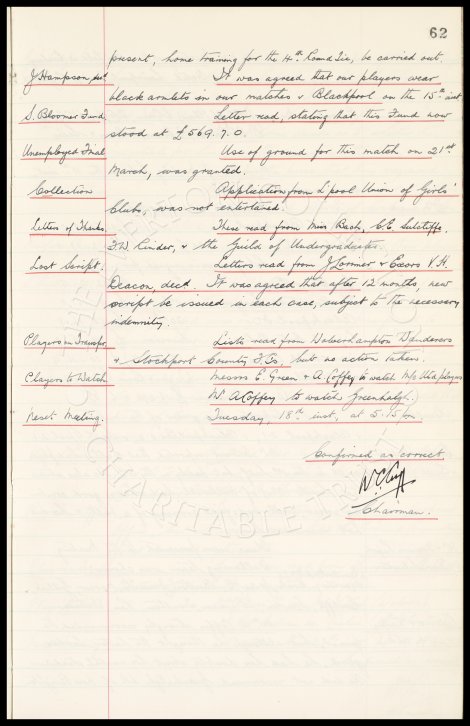 62
present, home training for the 4th Round Tie, be carried out.
J. Hampson, decd. It was agreed that our players wear
black armlets in our match v Blackpool on the 15th inst
S. Bloomer Fund. Letter read, stating that this Fund now
stood at £569. 7. 0.
Unemployed Final Use of ground for this match on 21st
March, was granted.
Collection Application from L'pool Union of Girls'
Clubs, was not entertained.
Letters of Thanks. These read from Miss Bach, C.E. Sutcliffe,
F.W. Rinder, & the Guild of Undergraduates.
Lost Script. Letters read from J. Lorimer & Exors V.H.
Deacon, decd. It was agreed that after 12 months, new
script be issued in each case, subject to the necessary
indemnity.
Players on Transfer Lists read from Wolverhampton Wanderers
& Stockport County F.Cs, but no action taken.
Players to Watch Messrs E. Green & A. Coffey to watch M/c Utd players
Mr A Coffey to watch Greenhalgh.
Next Meeting. Tuesday, 18th inst, at 5.15 pm
Confirmed as correct
W.C. Cuff
Chairman.
CHARITABLE TRUST